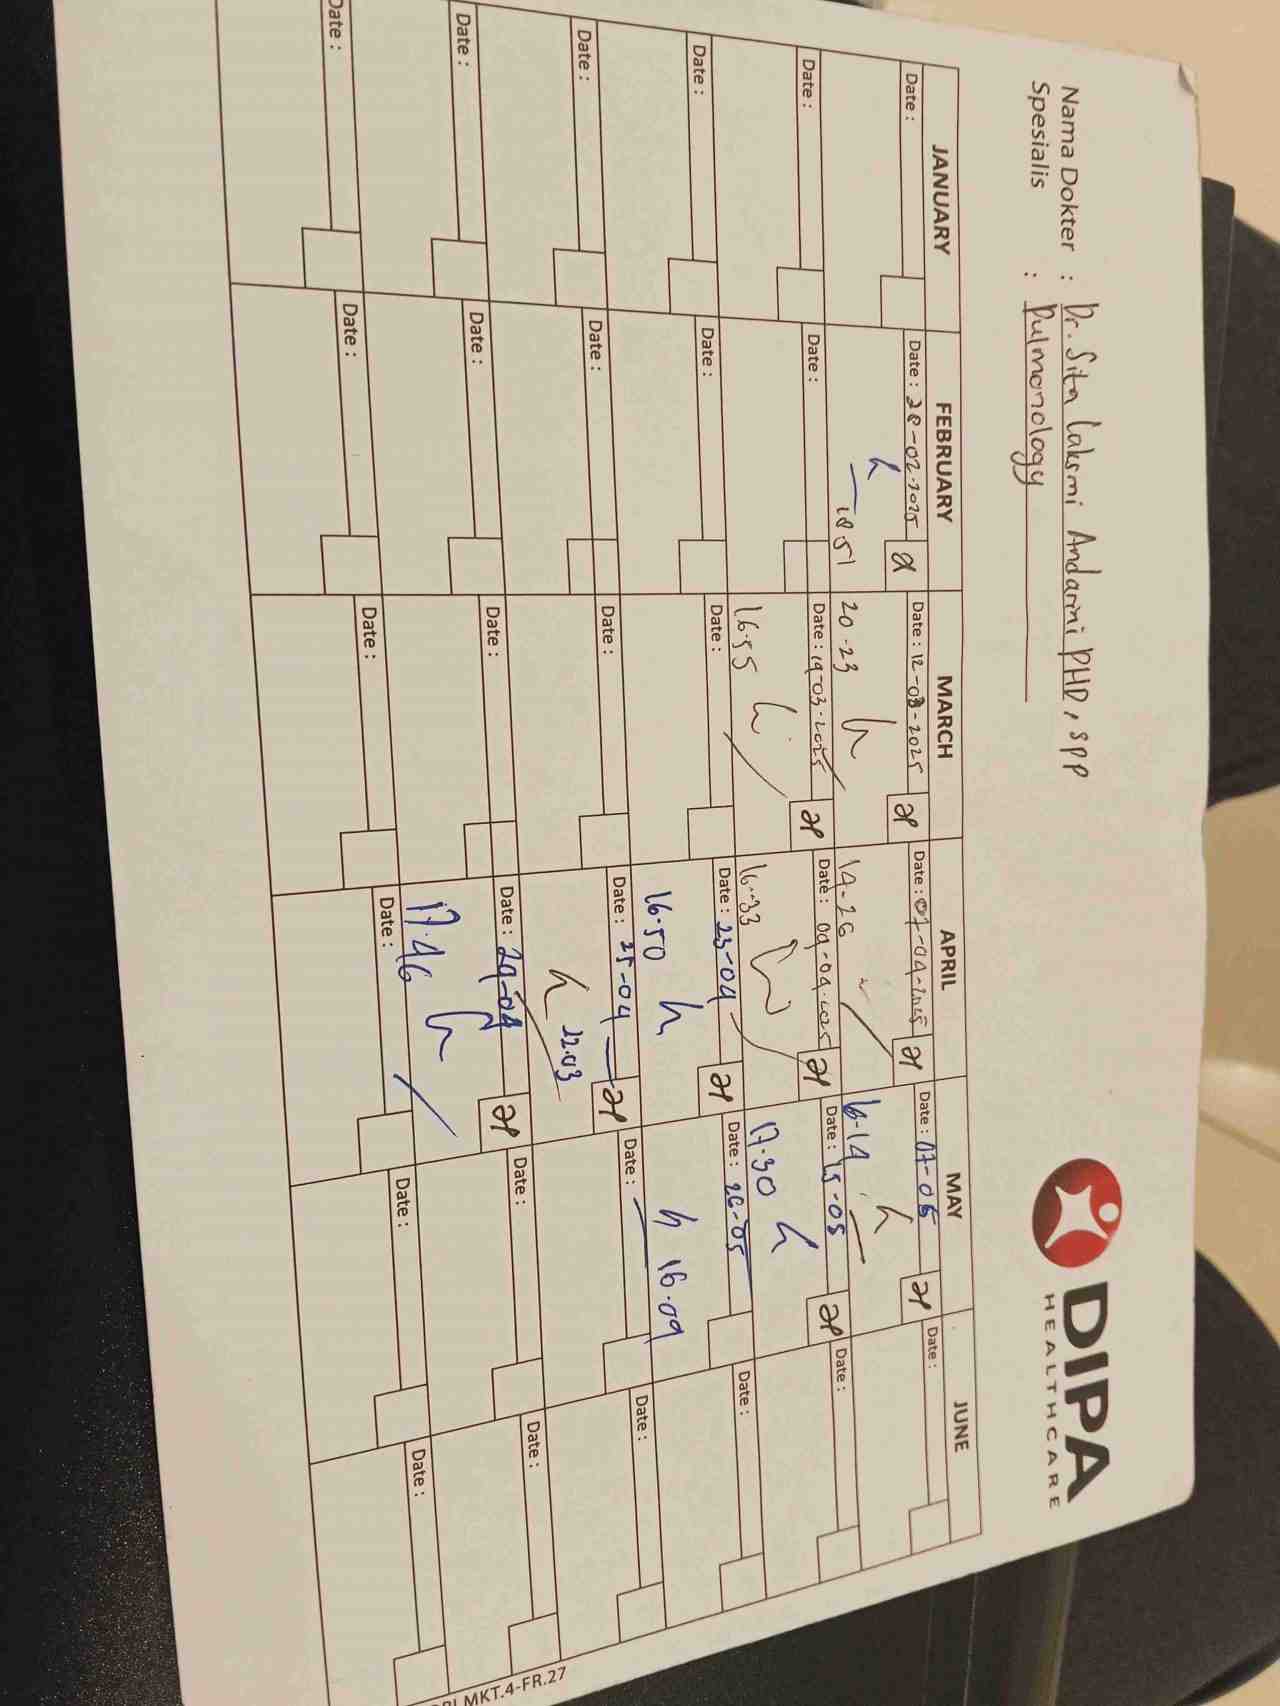 Nama Dokter : Dr. Sita Laksmi Andarini PHD, SPP
Spesialis : Pulmonology
DIPA
HEALTHCARE
JANUARY FEBRUARY MARCH APRIL MAY JUNE
Date : Date : 28-02-2025 Date : 12-03-2025 Date : 07-04-2025 Date : 07-05 Date :
18 51 20-23 14-26 16-14
Date : Date : Date : 19-03-2025 Date : 09-04-2025 Date : 15-05 Date :
16.55 16-33 17.30
Date : Date : Date : Date : 23-04 Date : 26-05 Date :
16.50 16.09
Date : Date : Date : Date : 25-04 Date : Date :
12.03
Date : Date : Date : Date : 29-04 Date : Date :
17.46
Date : Date : Date : Date : Date : Date :
MKT.4-FR.27